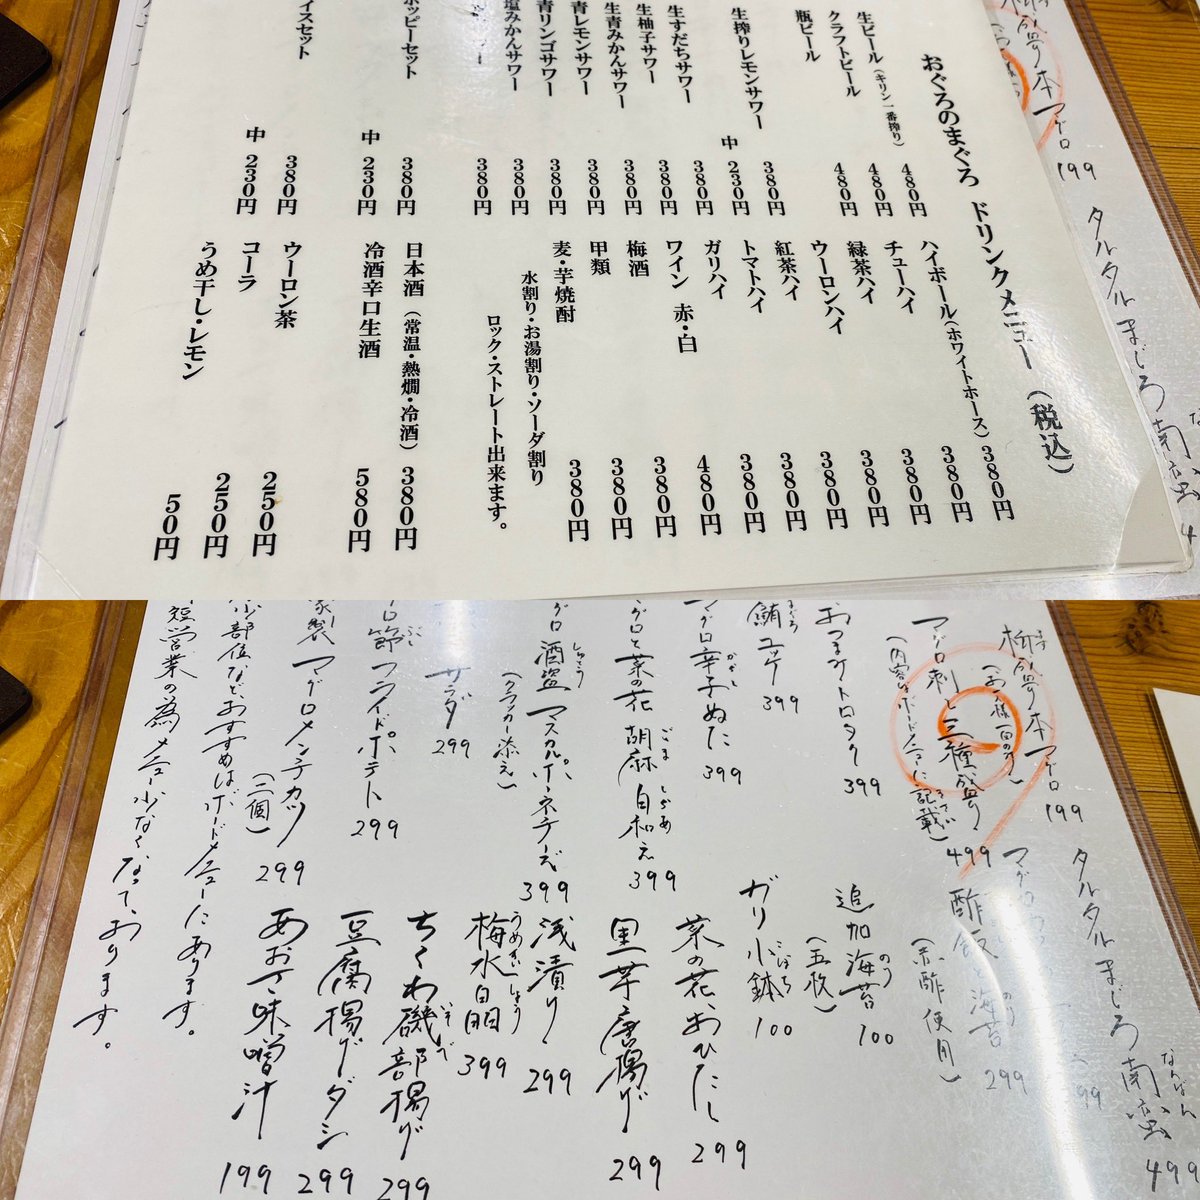 おぐろのまぐろ ドリンクメニュー（税込）
生ビール（キリン一番搾り） 480円
クラフトビール 480円
瓶ビール 480円
生搾りレモンサワー 380円
中 230円
生すだちサワー 380円
生柚子サワー 380円
生青みかんサワー 380円
青レモンサワー 380円
青リンゴサワー 380円
塩みかんサワー 380円
380円
ホッピーセット 380円
中 230円
イスセット 380円
中 230円
ハイボール（ホワイトホース） 380円
チューハイ 380円
緑茶ハイ 380円
ウーロンハイ 380円
紅茶ハイ 380円
トマトハイ 380円
ガリハイ 380円
ワイン 赤・白 480円
梅酒 380円
甲類 380円
麦・芋焼酎 380円
水割り・お湯割り・ソーダ割り
ロック・ストレート出来ます。
日本酒（常温・熱燗・冷酒） 380円
冷酒辛口生酒 580円
ウーロン茶 250円
コーラ 250円
うめ干し・レモン 50円
本マグロ 199
タルタルまじろ南蛮 4
柳盛り本マグロ 199
（お一様一百のみ）
マグロ刺し三種盛り 499
（内容はボードメニューに記載）
おつまみトロタク 399
鮪ユッケ 399
マグロ辛子ぬた 399
グロと菜の花 胡麻白和え 399
グロ酒盗マスカルポーネチーズ 399
（クラッカー添え）
サラダ 299
ロ節フライドポテト 299
家製マグロメンチカツ 299
（二個）
少部位など、おすすめはボードメニューにあります。
短営業の為メニュー少なくなっております。
タルタルまじろ南蛮 499
酢飯と海苔 299
（赤酢使用）
追加海苔 100
（五枚）
ガリ小鉢 100
菜の花おひたし 299
里芋唐揚げ 299
浅漬け 299
梅水晶 399
ちくわ磯部揚げ 299
豆腐揚げダシ 299
あおさ味噌汁 199